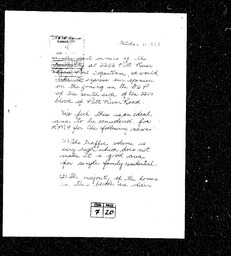 October 2, 1983
owners of the
property at 2282 Pitt River
Road, Port Coquitlam, we would
like to express our opinion
on the zoning in the O.C.P.
of the south side of the 2200
block of Pitt River Road.
We feel this is an ideal
area to be considered for
RM-4 for the following reasons:
(1) The traffic volume is
very high which does not
make it a good area
for single family residential.
(2) The majority of the homes
in this block are older
ITEM PAGE
7 20